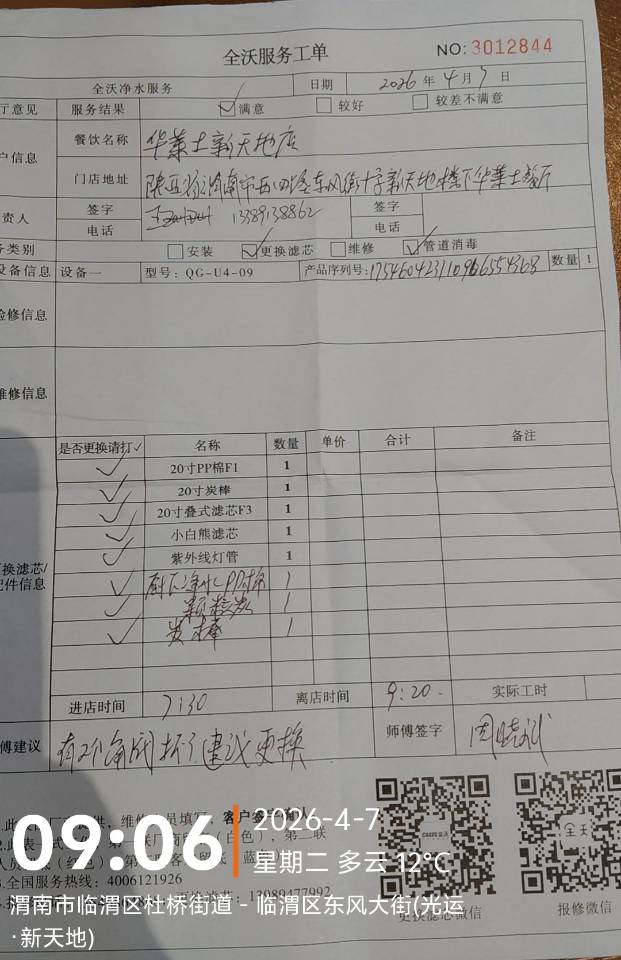 全沃服务工单
NO: 3012844
全沃净水服务 日期 2026 年 4 月 7 日
厅意见 服务结果 ☑满意 □较好 □较差不满意
户信息 餐饮名称 华莱士新天地店
门店地址 陕西省渭南市 东风街十字新天地楼下华莱士餐厅
责人 签字 签字
电话 13389138862 电话
务类别 □安装 ☑更换滤芯 □维修 ☑管道消毒
设备信息 设备一 型号: QG-U4-09 产品序列号: 数量 1
检修信息
维修信息
是否更换请打✓ 名称 数量 单价 合计 备注
✓ 20寸PP棉F1 1
✓ 20寸炭棒 1
✓ 20寸叠式滤芯F3 1
✓ 小白熊滤芯 1
✓ 紫外线灯管 1
换滤芯/
配件信息
✓ 厨下净水PP棉 1
✓ 颗粒炭 1
✓ 炭棒 1
进店时间 7:30 离店时间 9:20 实际工时
傅建议 有2个角阀坏了建议更换 师傅签字 周晓斌
09:06
2026-4-7
星期二 多云 12°C
3.全国服务热线: 4006121926
13089477992
更换滤芯微信 报修微信
渭南市临渭区杜桥街道 - 临渭区东风大街(光运
·新天地)